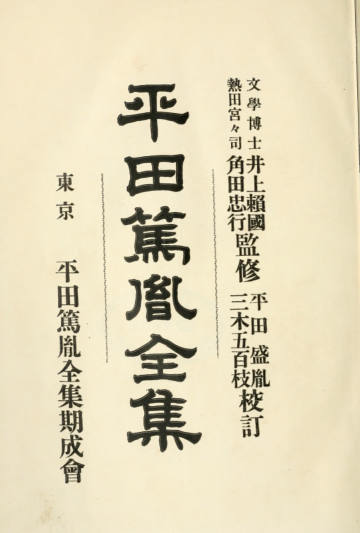 文學博士井上賴國
熱田宮々司角田忠行
監修
平田盛胤
三木五百枝
校訂
平田篤胤全集
東京 平田篤胤全集期成會